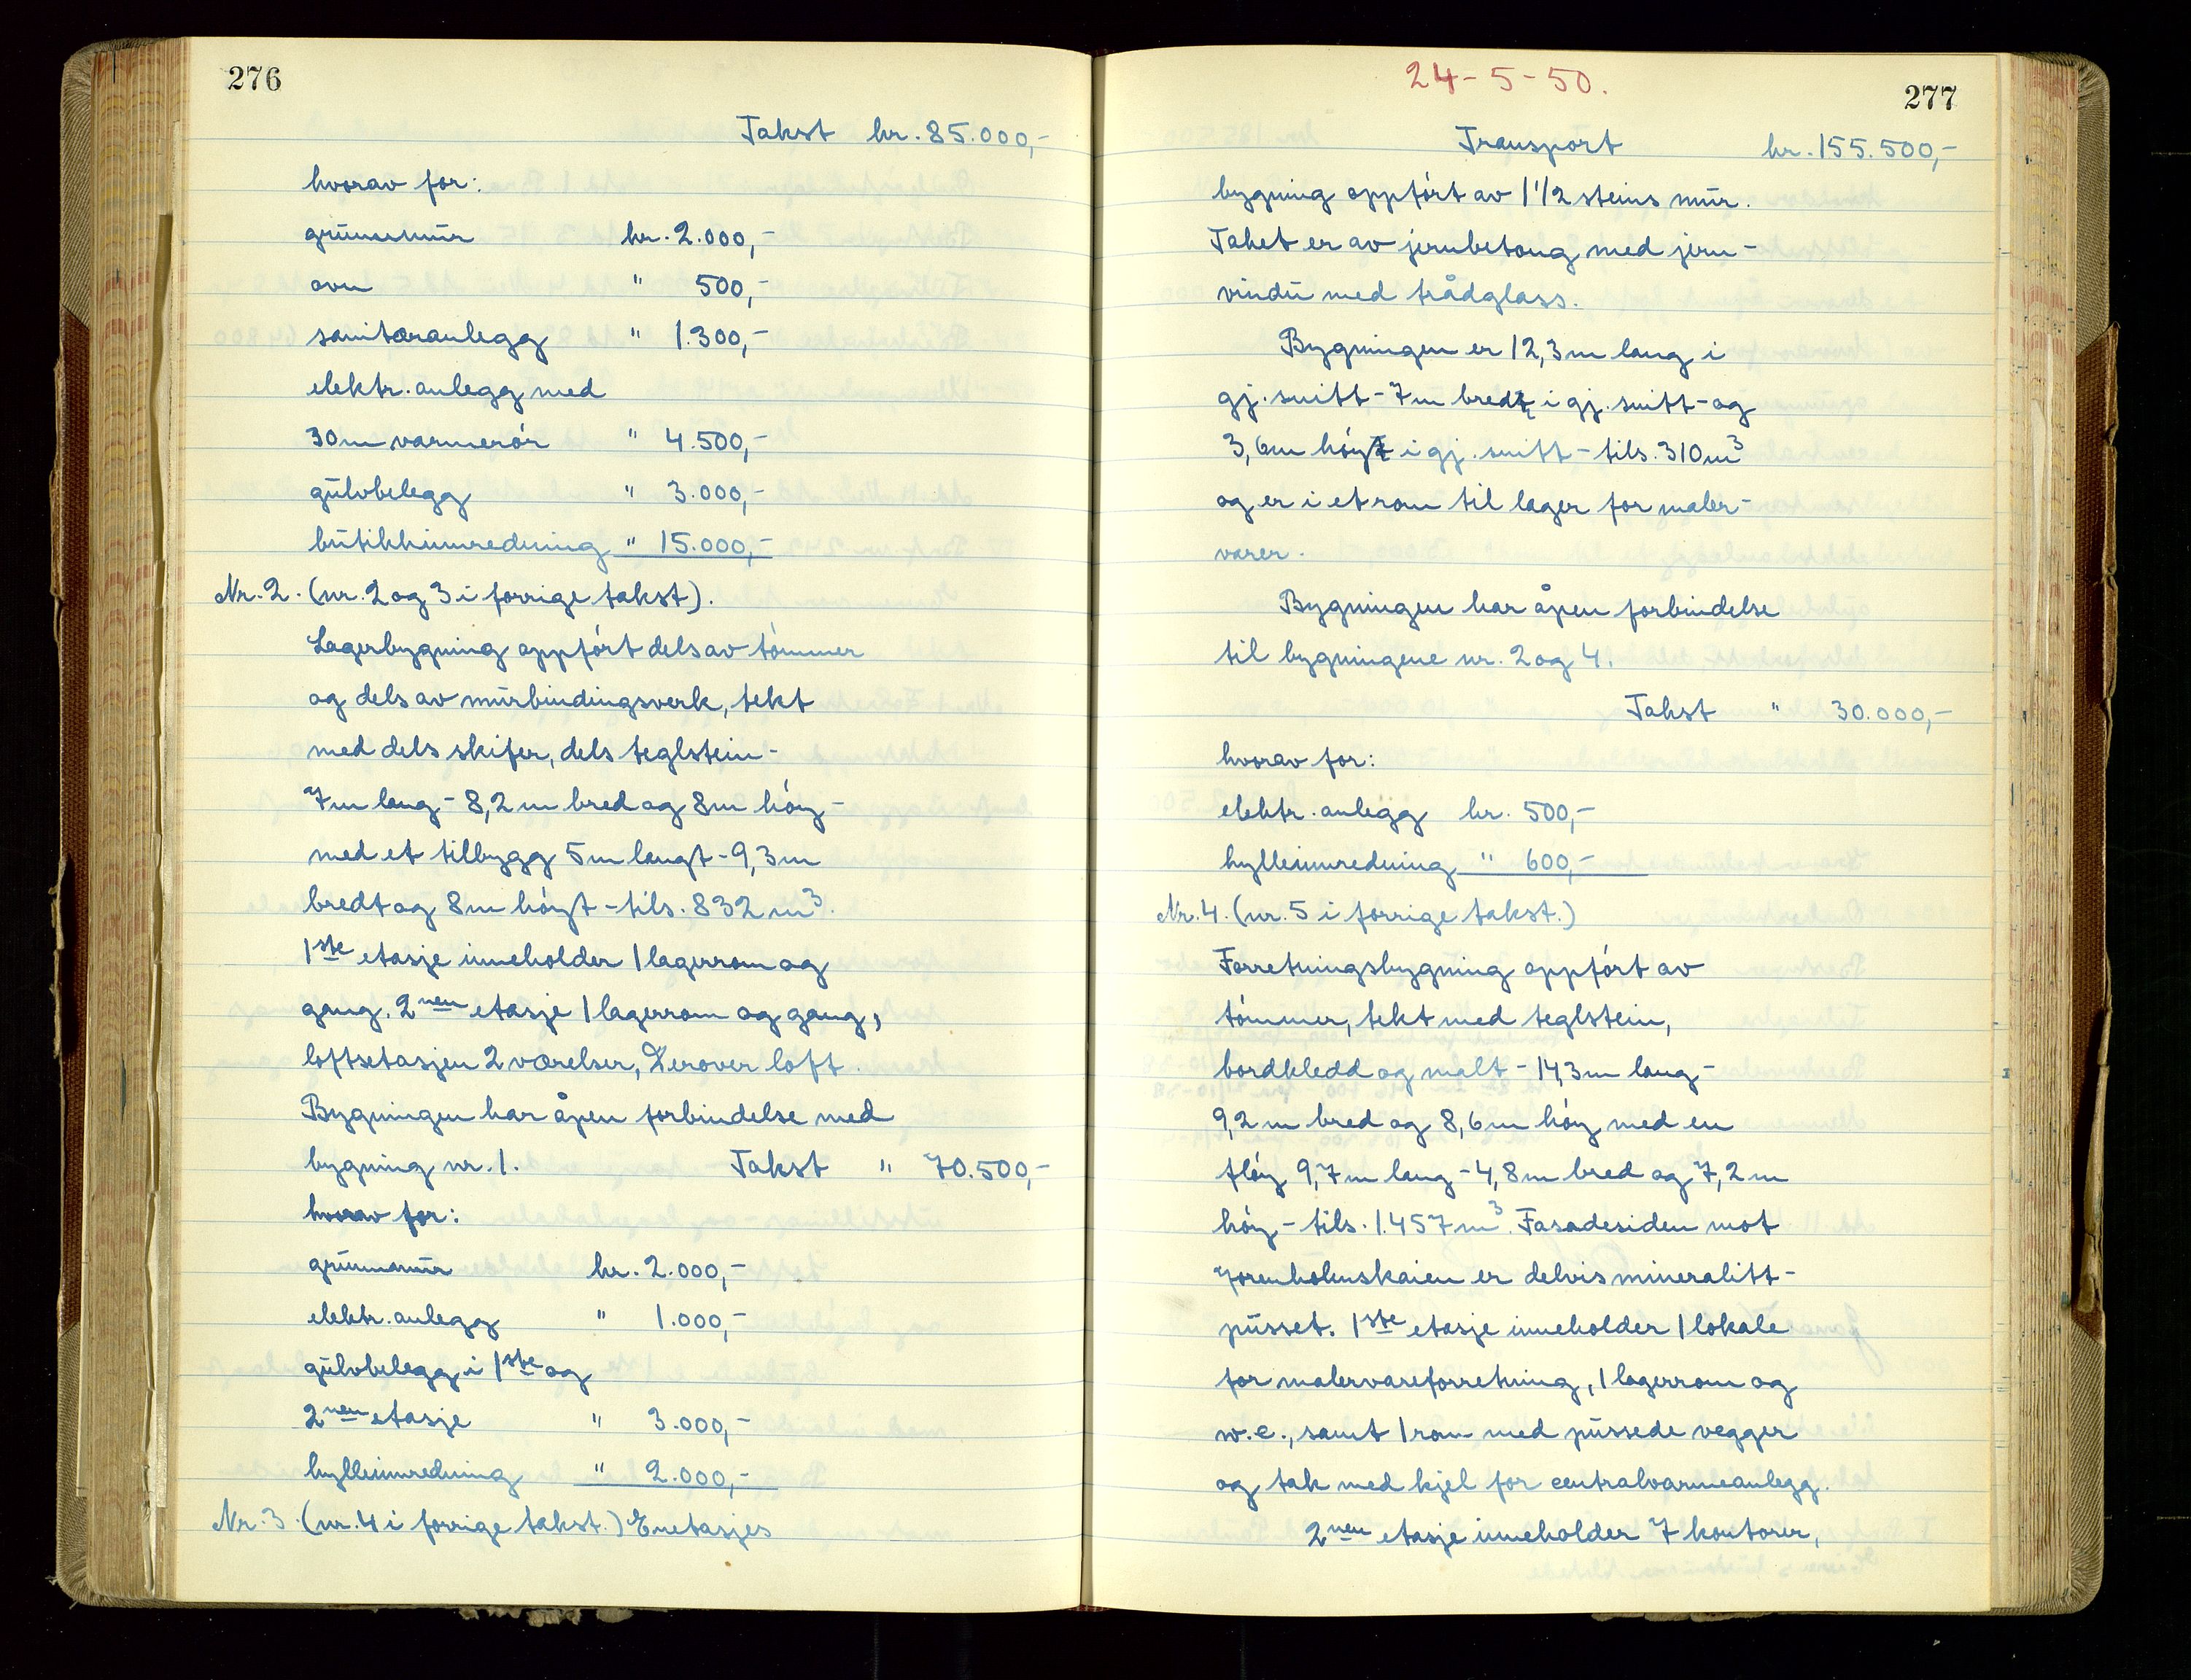 276
Takst kr. 85.000,-
hvorav for:
grunnmur kr. 2.000,-
ovn " 500,-
sanitæranlegg " 1.300,-
elektr. anlegg med
30m varmerör " 4.500,-
gulvbelegg " 3.000,-
butikkinnredning " 15.000,-
Nr. 2. (nr. 2 og 3 i forrige takst).
Lagerbygning oppfört dels av tömmer
og dels av murbindingsverk, tekt
med dels skifer, dels teglstein -
7m lang - 8,2 m bred og 8m höy -
med et tilbygg 5m langt - 9,3m
bredt og 8m höyt - tils. 832 m³.
1ste etasje inneholder 1 lagerrom og
gang. 2nen etasje 1 lagerrom og gang,
loftsetasjen 2 værelser, Derover loft.
Bygningen har åpen forbindelse med
bygning nr. 1. Takst " 70.500,-
hvorav for:
grunnmur kr. 2.000,-
elektr. anlegg " 1.000,-
gulvbelegg i 1ste og
2nen etasje " 3.000,-
hylleinnredning " 2.000,-
Nr. 3. (nr. 4 i forrige takst.) Enetasjes
24-5-50.
277
Transport kr. 155.500,-
bygning oppfört av 1 1/2 steins mur.
Taket er av jernbetong med jern-
vindu med trådglass.
Bygningen er 12,3m lang i
gj. snitt - 7m bred i gj. snitt - og
3,6m höy i gj. snitt - tils. 310m³
og er i et rom til lager for maler-
varer.
Bygningen har åpen forbindelse
til bygningene nr. 2 og 4.
Takst " 30.000,-
hvorav for:
elektr. anlegg kr. 500,-
hylleinnredning " 600,-
Nr. 4. (nr. 5 i forrige takst.)
Forretningsbygning oppfört av
tömmer, tekt med teglstein,
bordkledd og malt - 14,3m lang -
9,2 m bred og 8,6m höy med en
flöy 9,7m lang - 4,8m bred og 7,2 m
höy - tils. 1.457m³. Fasadesiden mot
Jorenholmskaien er delvis mineralitt-
pusset. 1ste etasje inneholder 1 lokale
for malervareforretning, 1 lagerrom og
w.c., samt 1 rom med pussede vegger
og tak med kjel for centralvarmeanlegg.
2nen etasje inneholder 7 kontorer,